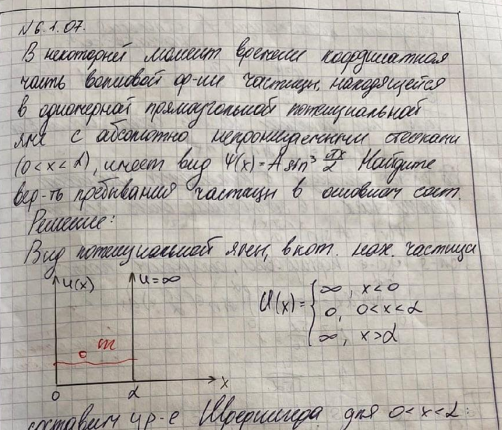 №6.1.07.
В некоторый момент времени координатная
часть волновой ф-ии частицы, находящейся
в одномерной прямоугольной потенциальной
яме с абсолютно непроницаемыми стенками
(0<x<α), имеет вид Ψ(x)=A sin³ πx/α Найдите
вер-ть пребывания частицы в основном сост.
Решение:
Вид потенциальной ямы, в кот. нах. частица
U(x) U=∞
m
0 α x
U(x)= { ∞, x<0
0, 0<x<α
∞, x>α
составим ур-е Шредингера для 0<x<α: